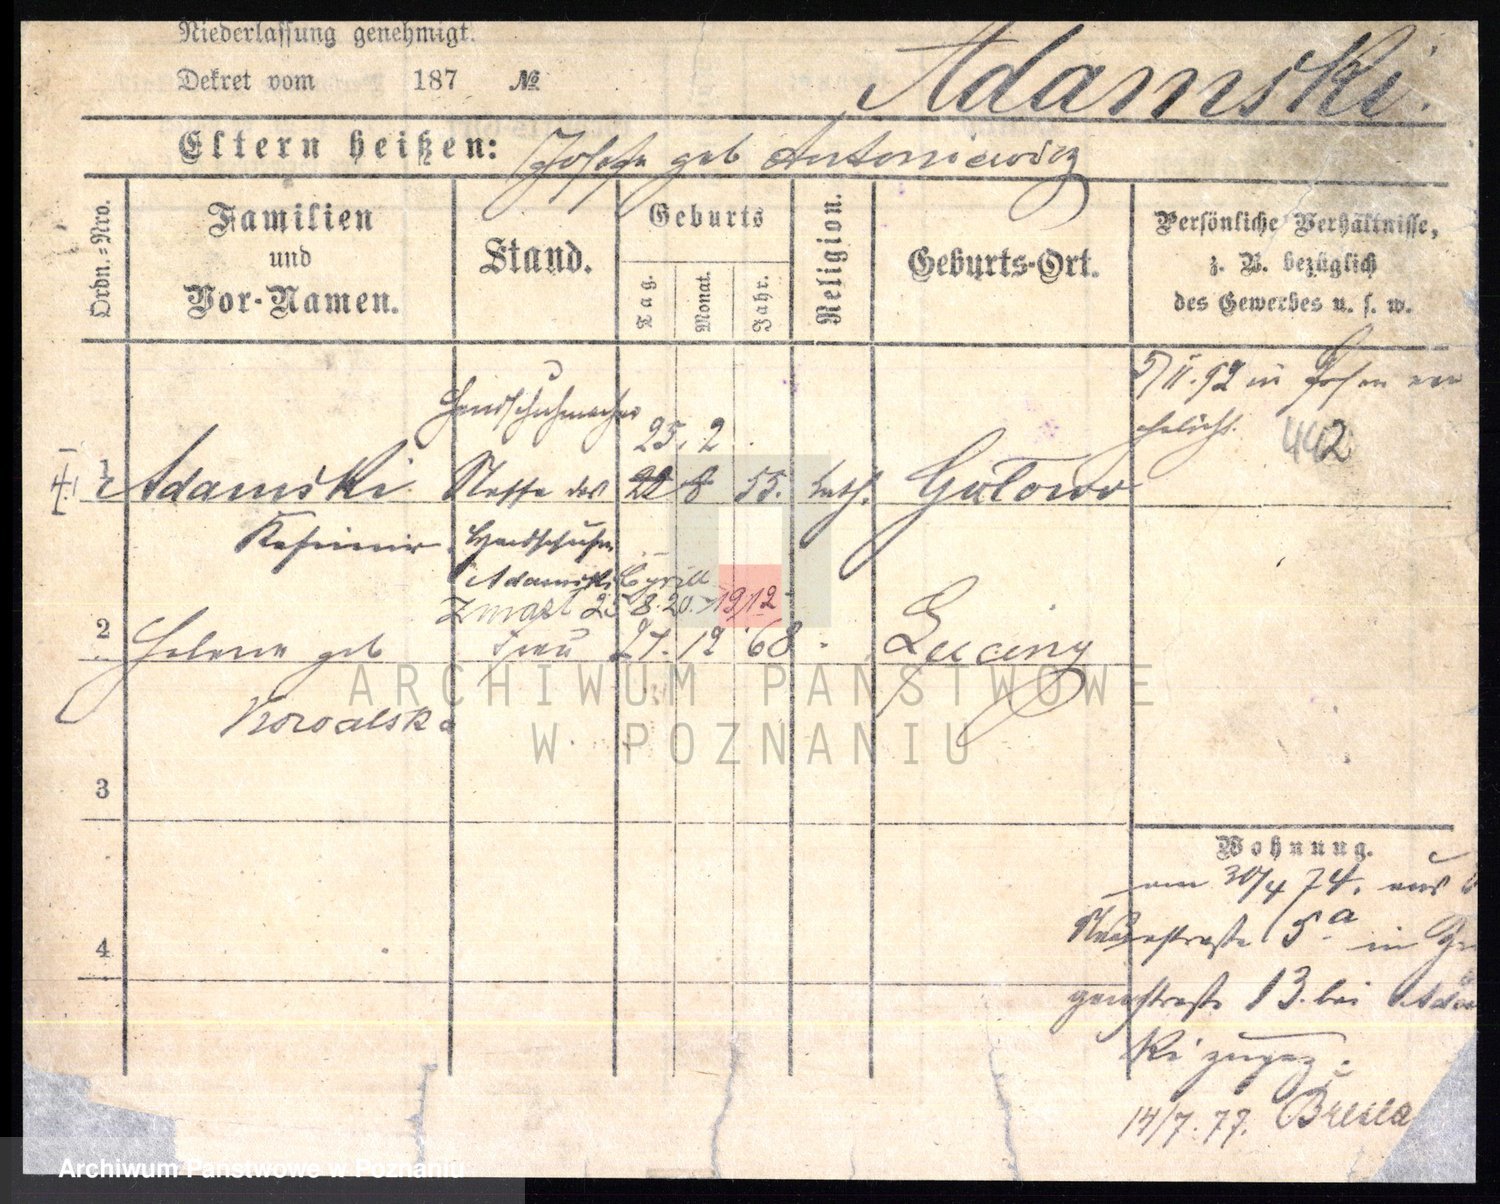 Niederlassung genehmigt.
Dekret vom 187 №
Adamski.
Eltern heißen: Josefa geb Antoniewicz
Ordn.=Nro.
Familien
und
Vor-Namen.
Stand.
Geburts
Tag.
Monat.
Jahr.
Religion.
Geburts-Ort.
Persönliche Verhältnisse,
z. B. bezüglich
des Gewerbes u. s. w.
5/II.92 in Posen ver
ehelicht.
442
Handschuhmacher
25. 2.
1 Adamski Neffe des 22 8 55. kath. Gultowo
Kasimir Handschuhm.
Adamski Cyrill
Zmarł 25 8.20. 1912
2 Helena geb Frau 27. 12 68
Kowalska
3
4
Wohnung.
am 30/4 74. aus
5a in
genstraße 13. bei Adam
ki zugez.
14/7.77.
ARCHIWUM PAŃSTWOWE
W POZNANIU
Archiwum Państwowe w Poznaniu